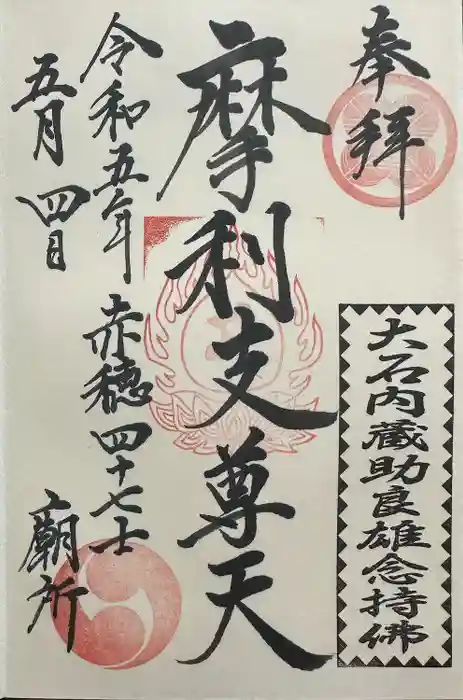 奉拝
大石内蔵助良雄念持佛
摩利支尊天
令和五年
五月四日
赤穂四十七士
廟所